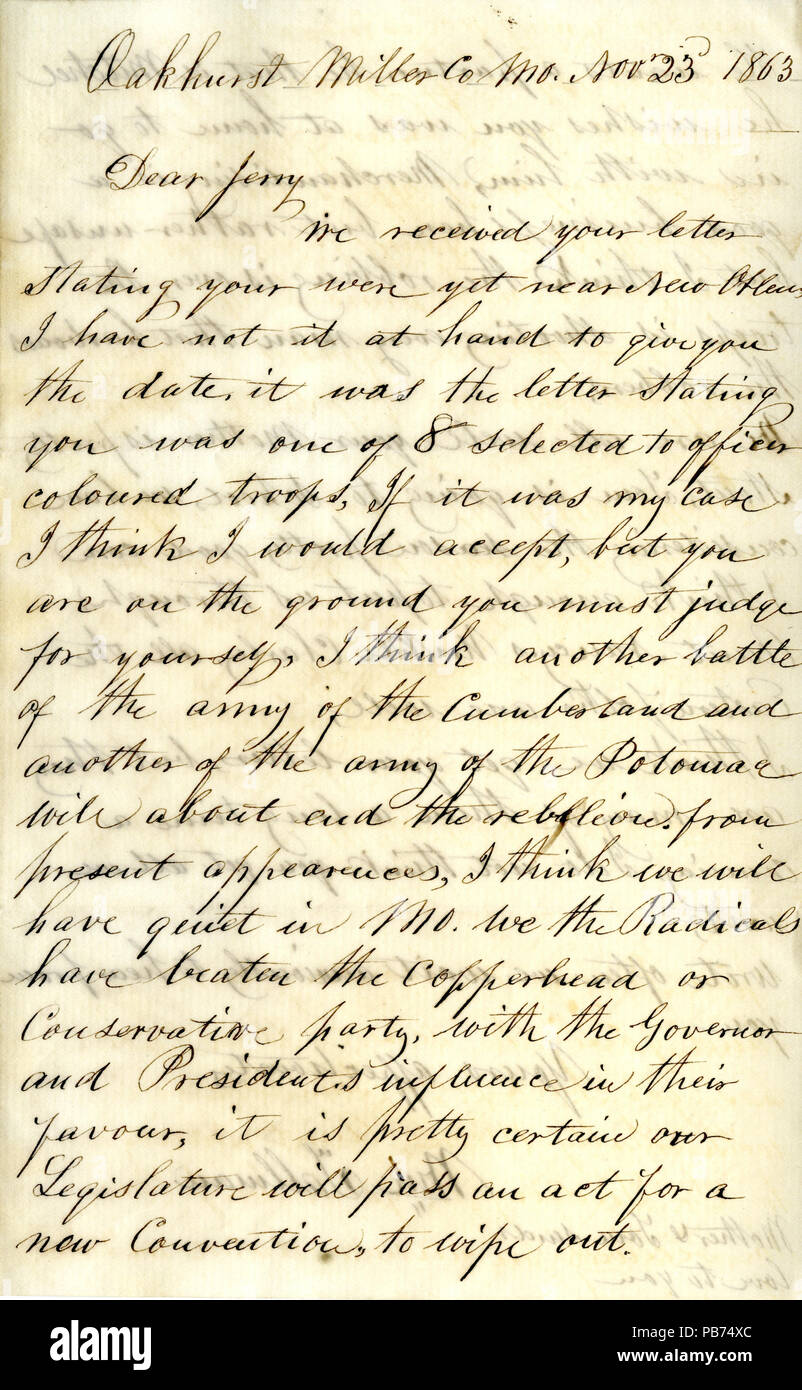 Oakhurst Miller Co Mo. Novr 23d 1863
Dear Jerry
We received your letter
stating your were yet near New Orleans
I have not it at hand to give you
the date, it was the letter stating
you was one of 8 selected to officer
coloured troops, If it was my case
I think I would accept, but you
are on the ground you must judge
for yourself, I think another battle
of the army of the Cumberland and
another of the army of the Potomac
will about end the rebelion. from
present appearences, I think we will
have quiet in Mo. We the Radicals
have beaten the Copperhead or
Conservative party, with the Governor
and President,s influence in their
favour, it is pretty certain our
Legislature will pass an act for a
new Convention, to wipe out.
alamy
Image ID: PB74XC
www.alamy.com